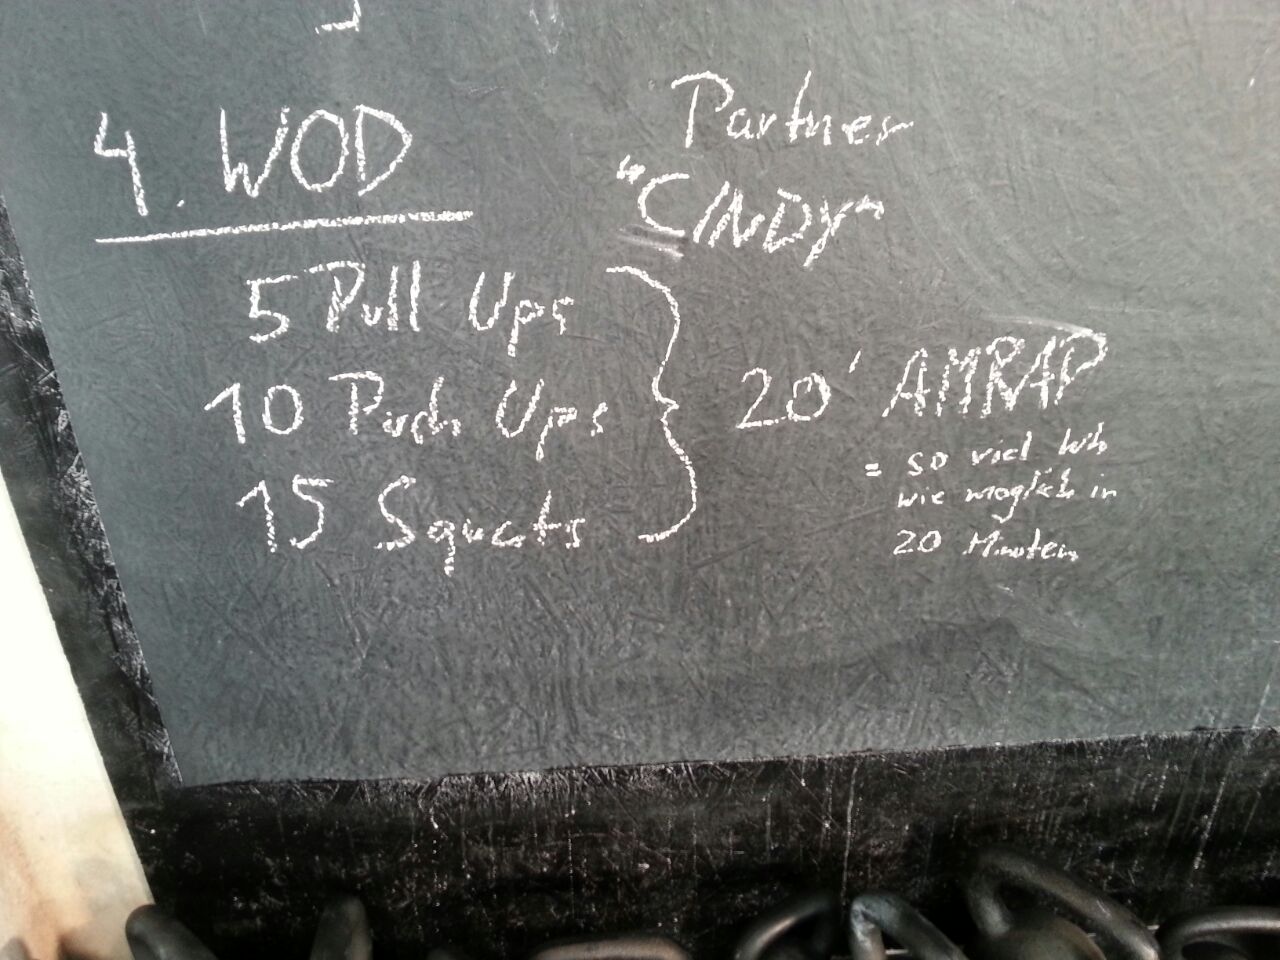 4. WOD
Partner
"CINDY"
5 Pull Ups
10 Push Ups
15 Squats
20' AMRAP
= so viel Wh
wie möglich in
20 Minuten